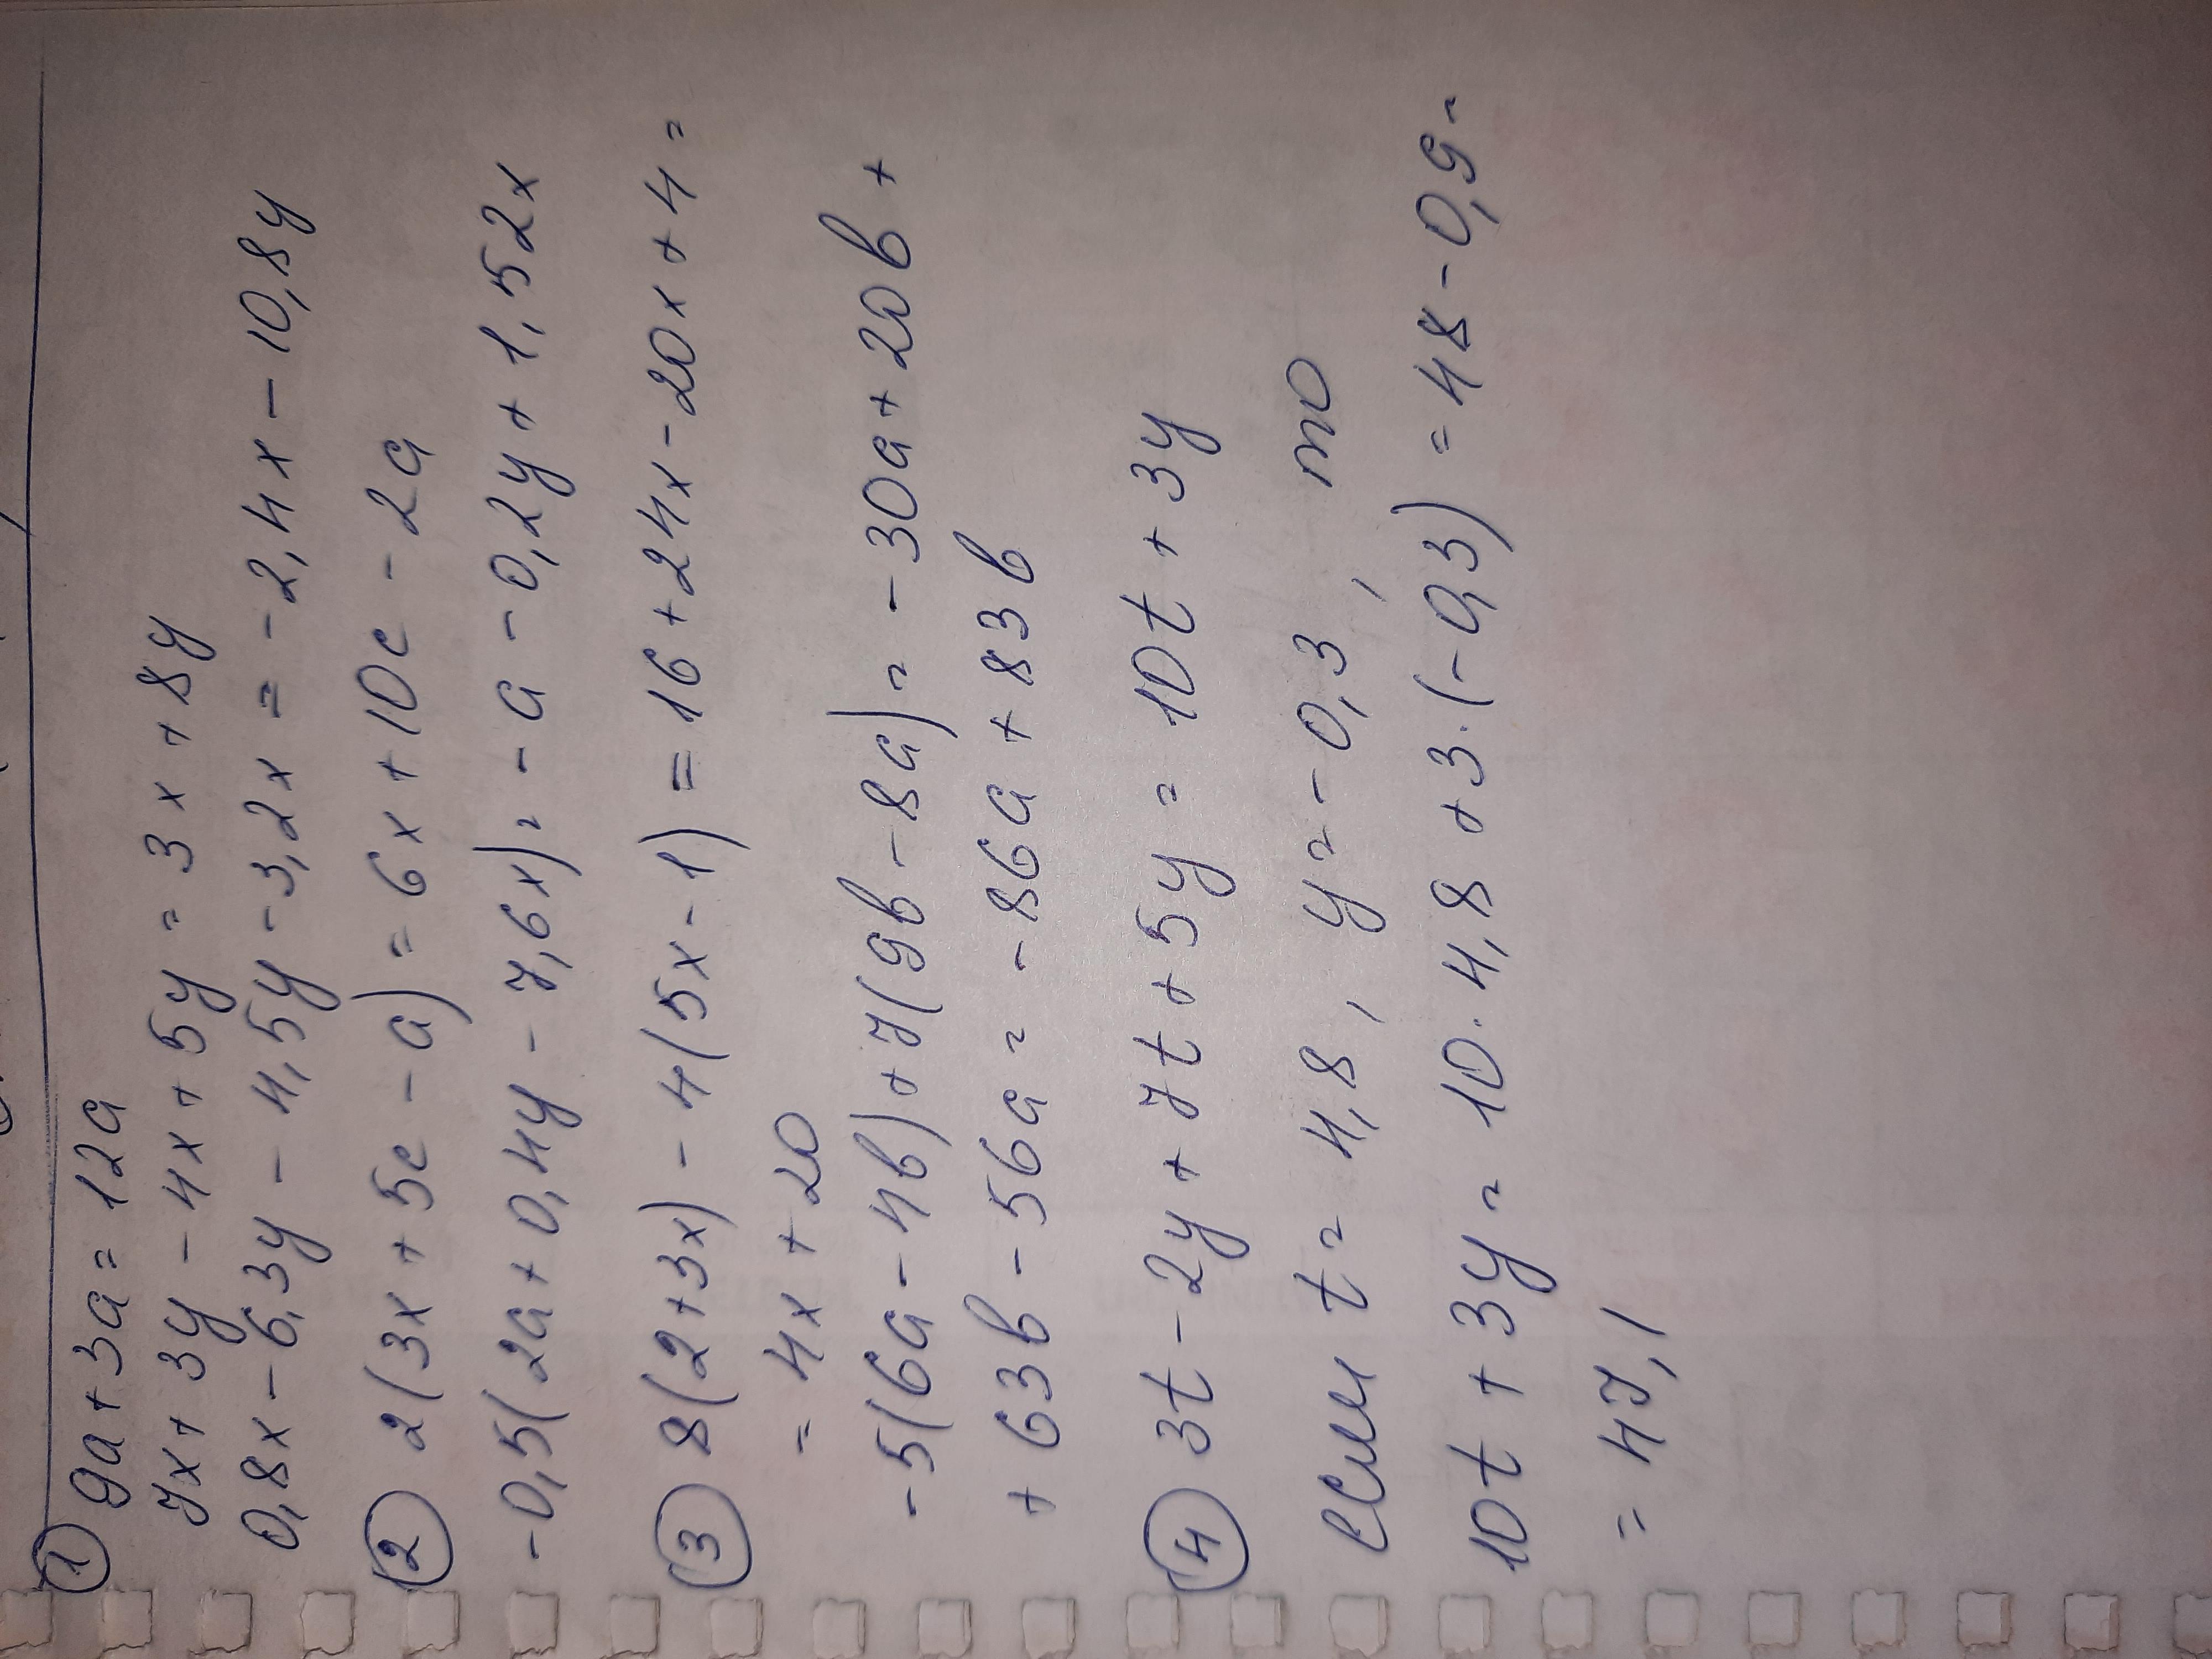 ① 9a + 3a = 12a
7x + 3y - 4x + 5y = 3x + 8y
0,8x - 6,3y - 4,5y - 3,2x = -2,4x - 10,8y
② 2(3x + 5c - a) = 6x + 10c - 2a
-0,5(2a + 0,4y - 7,6x) = -a - 0,2y + 1,52x
③ 8(2+3x) - 4(5x-1) = 16 + 24x - 20x + 4 =
= 4x + 20
-5(6a - 4b) + 7(9b - 8a) = -30a + 20b +
+ 63b - 56a = -86a + 83b
④ 3t - 2y + 7t + 5y = 10t + 3y
если t = 4,8, y = -0,3, то
10t + 3y = 10·4,8 + 3·(-0,3) = 48 - 0,9 =
= 47,1